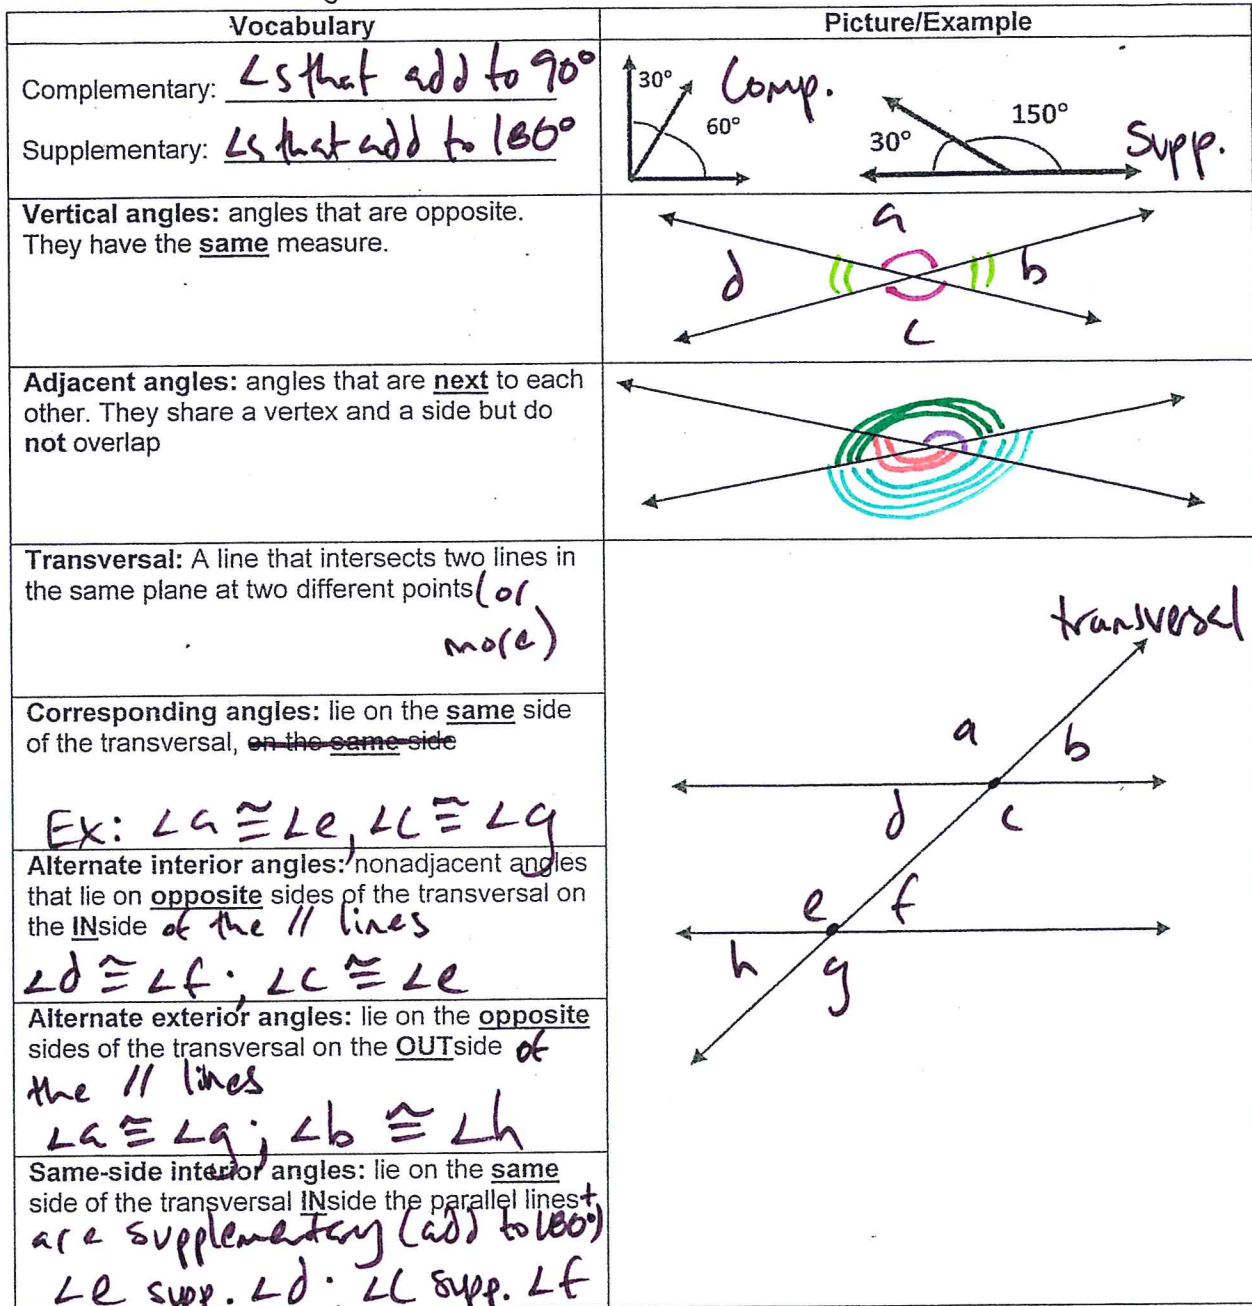 Vocabulary
Picture/Example
Complementary: ∠s that add to 90°
Supplementary: ∠s that add to 180°
30°
60°
Comp.
30°
150°
Supp.
Vertical angles: angles that are opposite.
They have the same measure.
a
d
b
c
Adjacent angles: angles that are next to each
other. They share a vertex and a side but do
not overlap
Transversal: A line that intersects two lines in
the same plane at two different points (or
more)
Corresponding angles: lie on the same side
of the transversal, on the same side
Ex: ∠a ≅ ∠e, ∠c ≅ ∠g
Alternate interior angles: nonadjacent angles
that lie on opposite sides of the transversal on
the INside of the // lines
∠d ≅ ∠f; ∠c ≅ ∠e
Alternate exterior angles: lie on the opposite
sides of the transversal on the OUTside of
the // lines
∠a ≅ ∠g; ∠b ≅ ∠h
Same-side interior angles: lie on the same
side of the transversal INside the parallel lines +
are supplementary (add to 180°)
∠e supp. ∠d; ∠c supp. ∠f
transversal
a
b
d
c
e
f
h
g